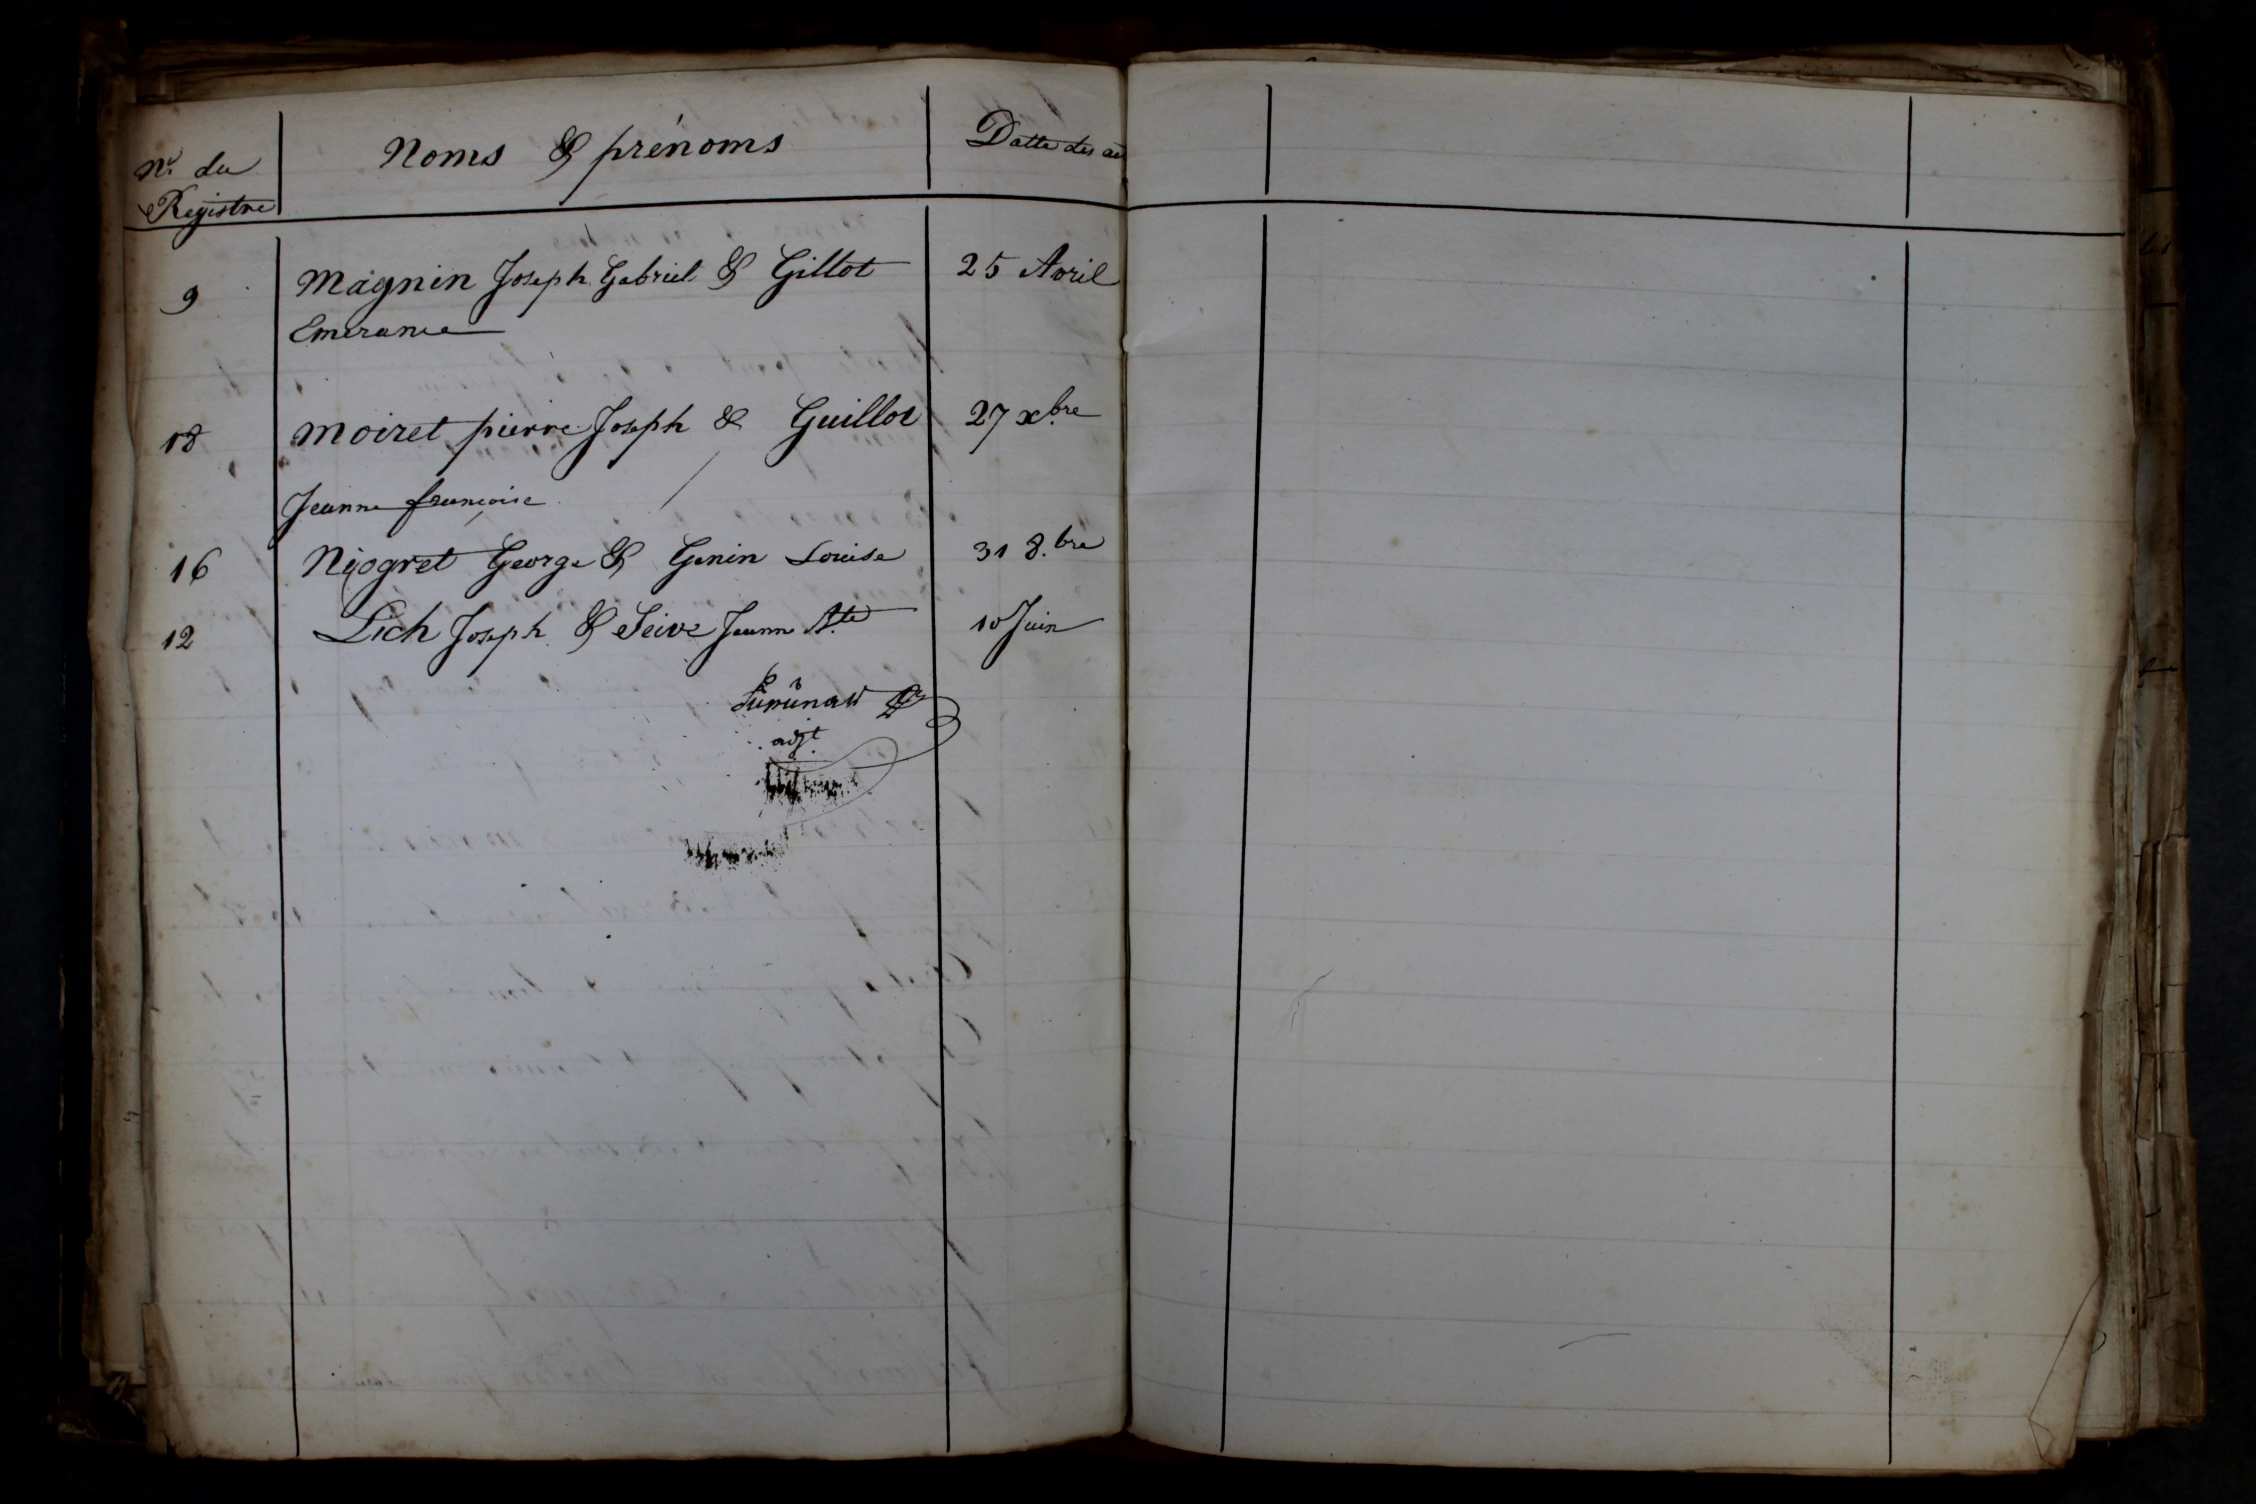 N.º du
Registre
Noms & prénoms
Datte des ac
9 Magnin Joseph Gabriel & Gillot 25 Avril
Emerance
18 Moiret pierre Joseph & Guillot 27 xbre
Jeanne françoise
16 Niogret George & Genin Louise 31 8.bre
12 Lich Joseph & Seive Jeanne 10 Juin
adjt.